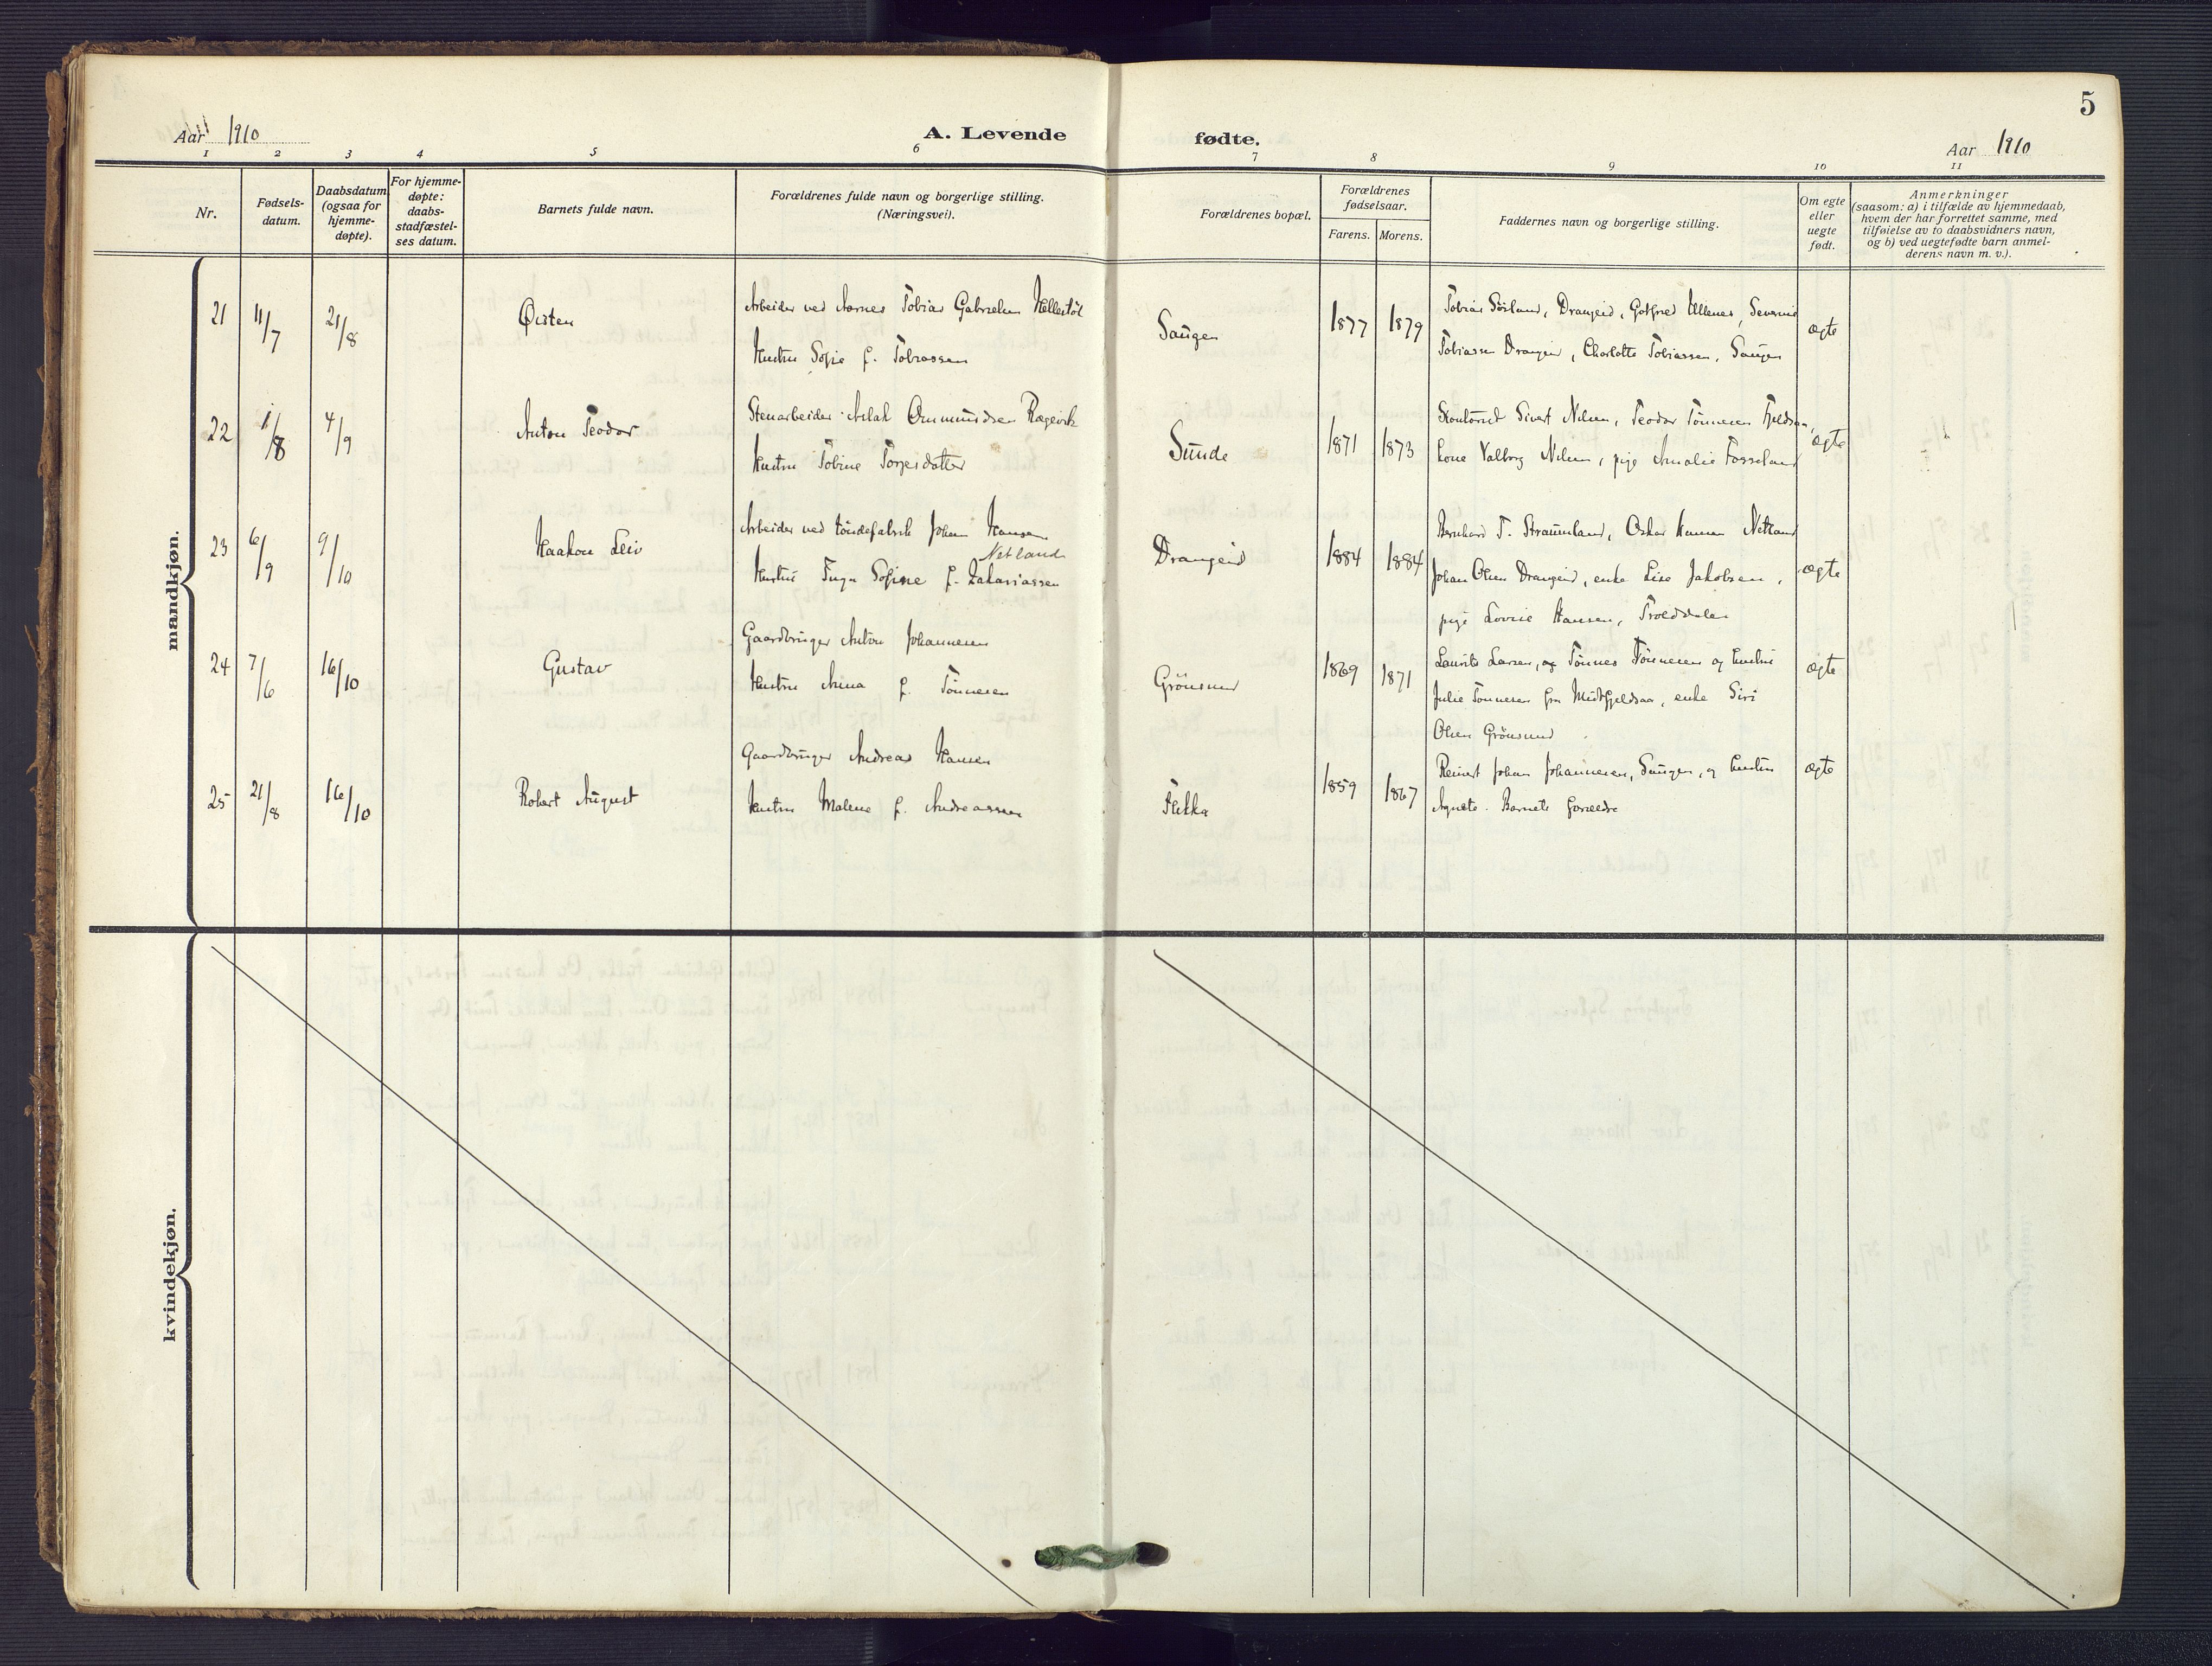 5
Aar 1910
A. Levende fødte.
Aar 1910
1 2 3 4 5 6 7 8 9 10 11
Nr.
Fødsels-
datum.
Daabsdatum
(ogsaa for
hjemme-
døpte).
For hjemme-
døpte:
daabs-
stadfæstel-
ses datum.
Barnets fulde navn.
Forældrenes fulde navn og borgerlige stilling.
(Næringsvei).
Forældrenes bopæl.
Forældrenes
fødselsaar.
Farens. Morens.
Faddernes navn og borgerlige stilling.
Om egte
eller
uegte
født.
Anmerkninger
(saasom: a) i tilfælde av hjemmedaab,
hvem der har forrettet samme, med
tilføielse av to daabsvidners navn,
og b) ved uegtefødte barn anmel-
derens navn m. v.).
mandkjøn.
21 11/7 21/8 Øisten
Arbeider ved Tobias Gabrielsen
Hustru Sofie f. Tobiassen
Saugen 1877 1879
Tobias Drangeid, Gotfred
Tobiassen Drangeid, Charlotte Tobiassen, Saugen
ægte
22 1/8 4/9 Anton Teodor
Stenarbeider Aslak Ommundsen Rægevik
Hustru Tobine Torjesdatter
Sunde 1871 1873
Sivert Nilsen, Teodor Tønnesen
Kone Valborg Nilsen, pige Amalie Fosseland
ægte
23 6/9 9/10 Haakon Leiv
Arbeider ved tøndefabrik Johan Hansen
Netland
Hustru Sofine f. Zakariassen
Drangeid 1884 1884
Bernhard T. Straumland, Oskar Hansen Netland
Johan Olsen Drangeid, enke Lise Jakobsen,
pige Lovise Hansen, Trolddalen
ægte
24 7/6 16/10 Gustav
Gaardbruger Anton Johannesen
Hustru Anna f. Tønnesen
Grönsund 1869 1871
Laurits Larsen, og Tønnes Tønnesen og hustru
Julie Tønnesen fra Midtfjeldsaa, enke Siri
Olsen Grönsund
ægte
25 21/8 16/10 Robert August
Gaardbruger Andreas Hansen
Hustru Malene f. Andreassen
Flikka 1859 1867
Reinert Johan Johannesen, Saugen, og hustru
Agnete. Barnets forældre
ægte
kvindekjøn.